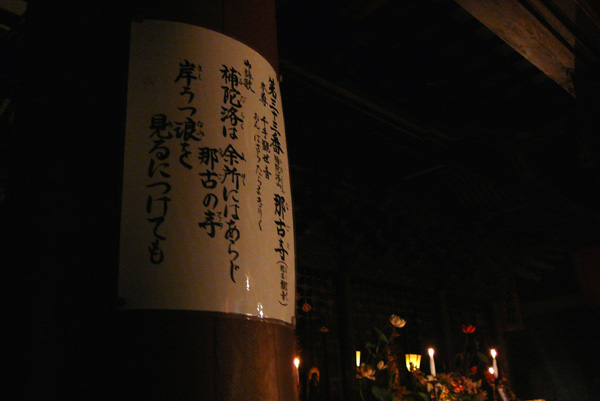 第三十三番 那古寺
本尊 千手観世音
おん ばさらだらまきりく
御詠歌
補陀洛は 余所にはあらじ
那古の寺
岸うつ浪を
見るにつけても